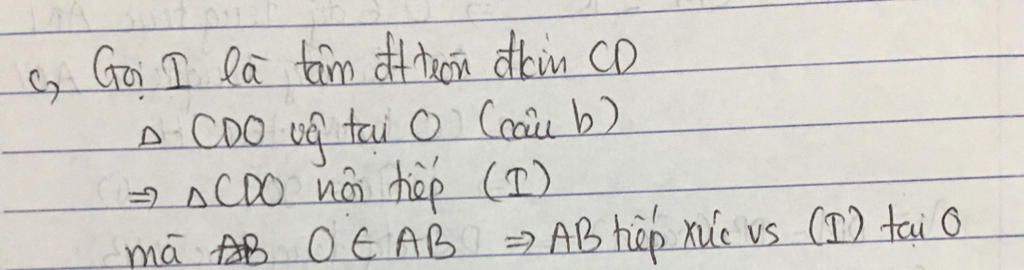 c, Gọi I là tâm đttròn đkín CD
Δ CDO vg tại O (câu b)
⇒ ΔCDO nội tiếp (I)
mà O ∈ AB ⇒ AB tiếp xúc vs (I) tại O